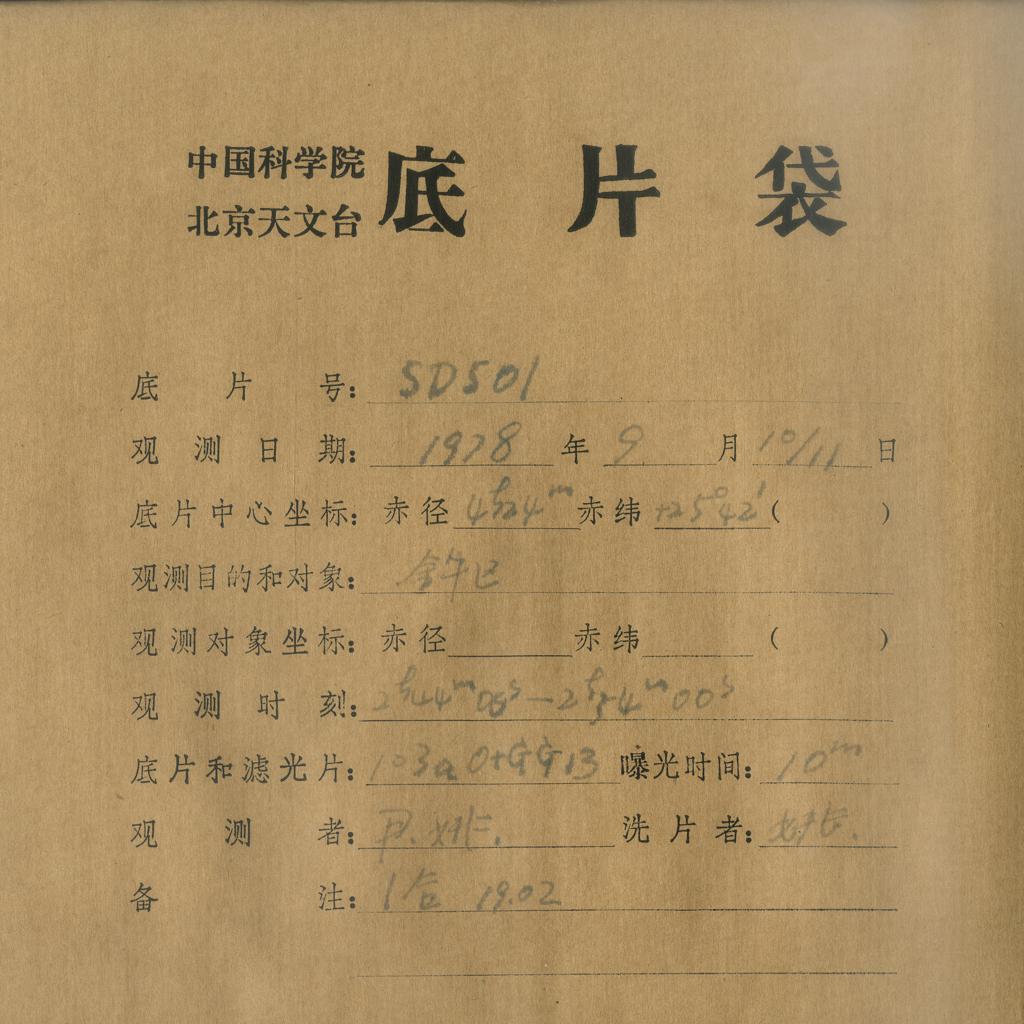 中国科学院
北京天文台
底片袋
底片号：SD501
观测日期：1978年9月10/11日
底片中心坐标：赤径4h24m赤纬+25°42'( )
观测目的和对象：金牛
观测对象坐标：赤径 赤纬 ( )
观测时刻：2h44m00s—2h54m00s
底片和滤光片：103aO+GG13 曝光时间：10m
观测者：尹.姚. 洗片者：姚.
备注：1合 19.02